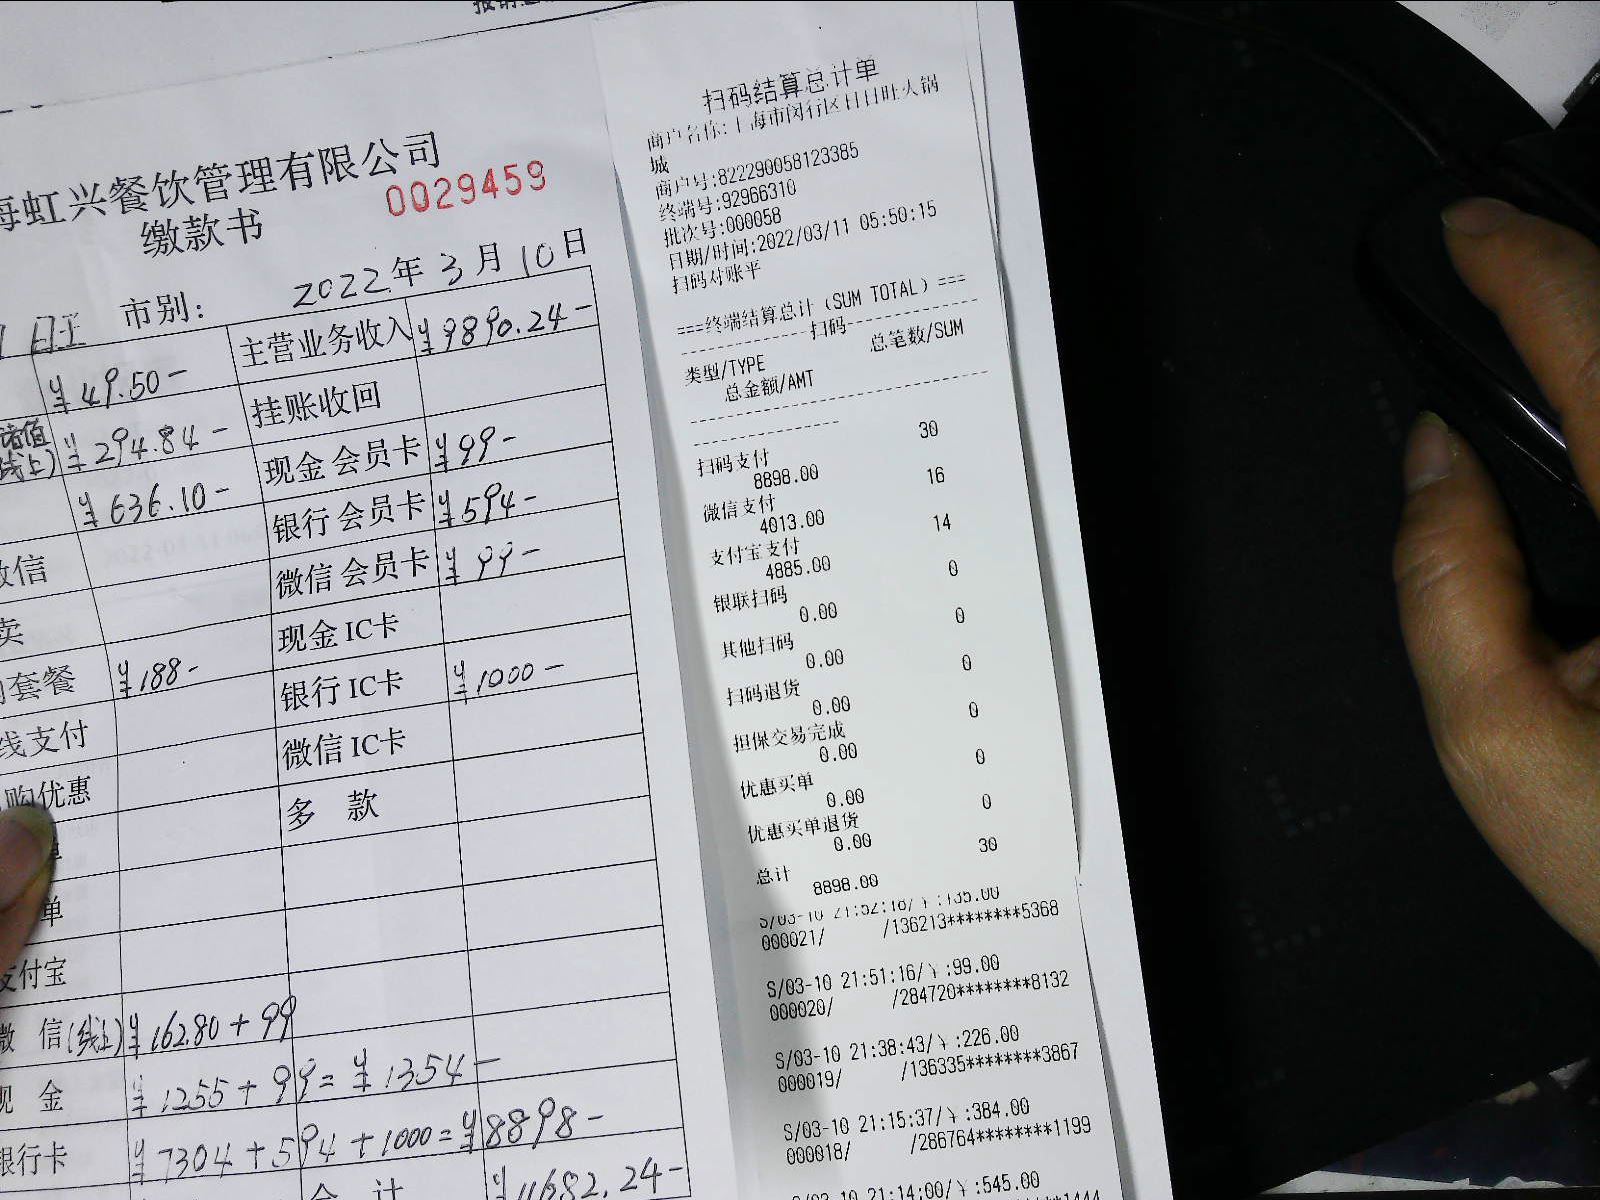 海虹兴餐饮管理有限公司
0029459
缴款书
2022年3月10日
市别:
¥49.50- 主营业务收入 ¥9890.24-
储值 ¥294.84- 挂账收回
线上)
¥636.10- 现金会员卡 ¥99-
银行会员卡 ¥594-
微信 微信会员卡 ¥99-
卖 现金IC卡
套餐 ¥188- 银行IC卡 ¥1000-
线支付 微信IC卡
购优惠 多 款
单
单
支付宝
微 信(线上) ¥162.80+99
现 金 ¥1255+99=¥1354-
银行卡 ¥7304+594+1000=¥8898-
合 计 ¥11682.24-
扫码结算总计单
商户名称:上海市闵行区日日旺火锅
城
商户号:822290058123385
终端号:92966310
批次号:000058
日期/时间:2022/03/11 05:50:15
扫码对账平
===终端结算总计(SUM TOTAL)===
----------扫码----------
类型/TYPE 总笔数/SUM
总金额/AMT
扫码支付 30
8898.00
微信支付 16
4013.00
支付宝支付 14
4885.00
银联扫码 0
0.00
其他扫码 0
0.00
扫码退货 0
0.00
担保交易完成 0
0.00
优惠买单 0
0.00
优惠买单退货 0
0.00
总计 30
8898.00
000021/ /136213********5368
S/03-10 21:51:16/¥:99.00
000020/ /284720********8132
S/03-10 21:38:43/¥:226.00
000019/ /136335********3867
S/03-10 21:15:37/¥:384.00
000018/ /286764********1199
S/03-10 21:14:00/¥:545.00